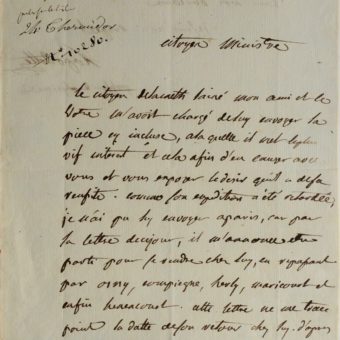 24 Thermidor
N° 10280.
Citoyen Ministre
le citoyen aîné mon ami et le
votre m'avoit chargé de luy envoyer la
piece cy incluse, a la quelle il met le plus
vif interet et cela afin d'en causer avec
vous et vous exposer le desir qu'il a de sa
reussite. comme son expedition a été retardée,
je n'ai pu luy envoyer a paris, car par
la lettre de ce jour, il m'annonce etre
parti pour se rendre chez luy, en repassant
par compiegne, et
enfin cette lettre ne me trace
point la datte de son retour chez luy. d'apres